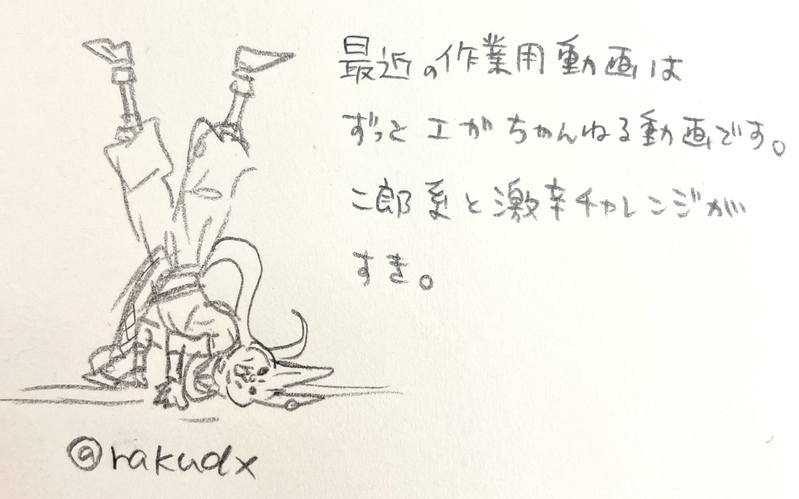 最近の作業用動画は
ずっとエガちゃんねる動画です。
二郎系と激辛チャレンジが
すき。
@rakudx